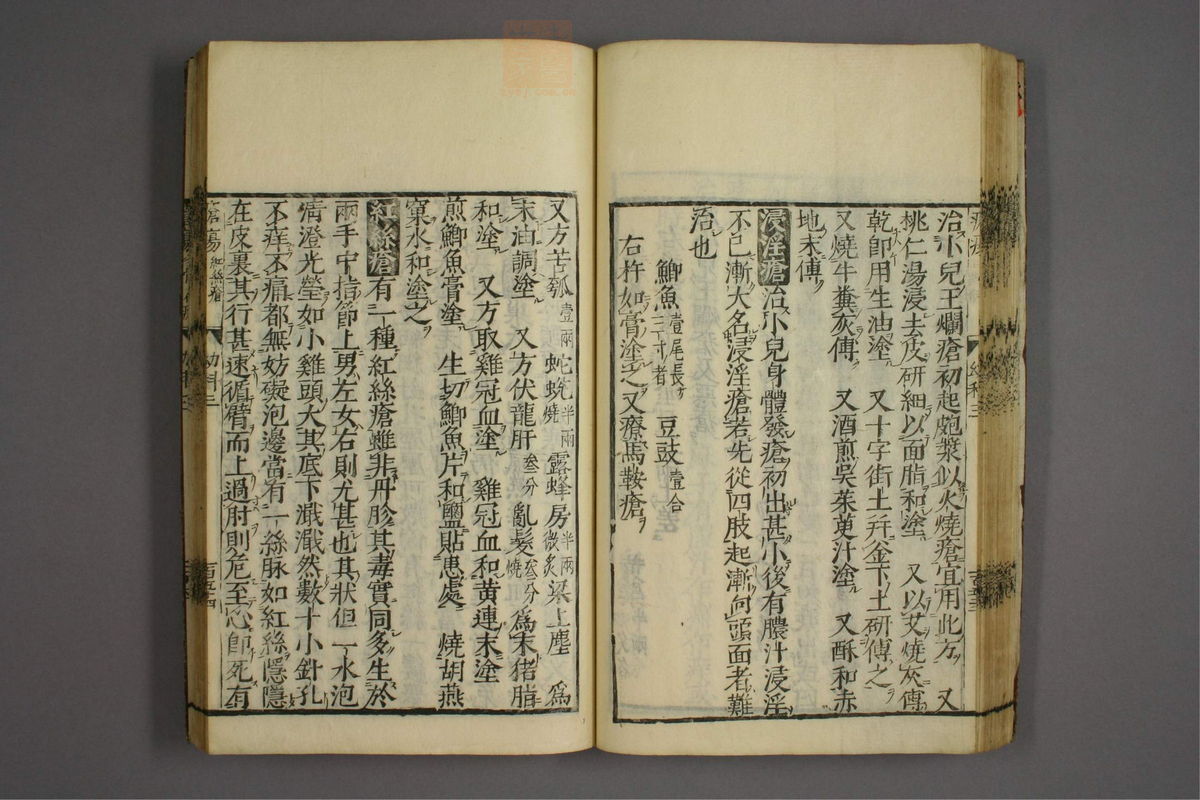 治小兒王爛瘡初起皰漿似火燒瘡宜用此方 又
桃仁湯浸去皮研細以面脂和塗 又以艾燒灰傅
乾即用生油塗 又十字街土幷釜下土研傅之
又燒牛糞灰傅 又酒煎吳茱萸汁塗 又酥和赤
地末傅
浸淫瘡治小兒身體發瘡初出甚小後有膿汁浸淫
不已漸大名浸淫瘡若先從四肢起漸向頭面者難
治也
鯽魚壹尾長二寸者 豆豉壹合
右杵如膏塗之又療馬鞍瘡
又方苦瓠壹兩 蛇蛻燒半兩 露蜂房微炙半兩 梁上塵 爲
末油調塗 又方伏龍肝叁分 亂髮燒叁分 爲末猪脂
和塗 又方取雞冠血塗 雞冠血和黃連末塗
煎鯽魚膏塗 生切鯽魚片和鹽貼患處 燒胡燕
窠水和塗之
紅絲瘡有一種紅絲瘡雖非丹胗其毒實同多生於
兩手中指節上男左女右則尤甚也其狀但一水泡
清澄光瑩如小雞頭大其底下濈濈然數十小針孔
不痒不痛都無妨礙泡邊當有一絲脉如紅絲隱隱
在皮裏其行甚速循臂而上過肘則危至心卽死有
瘡瘍 紅絲瘡